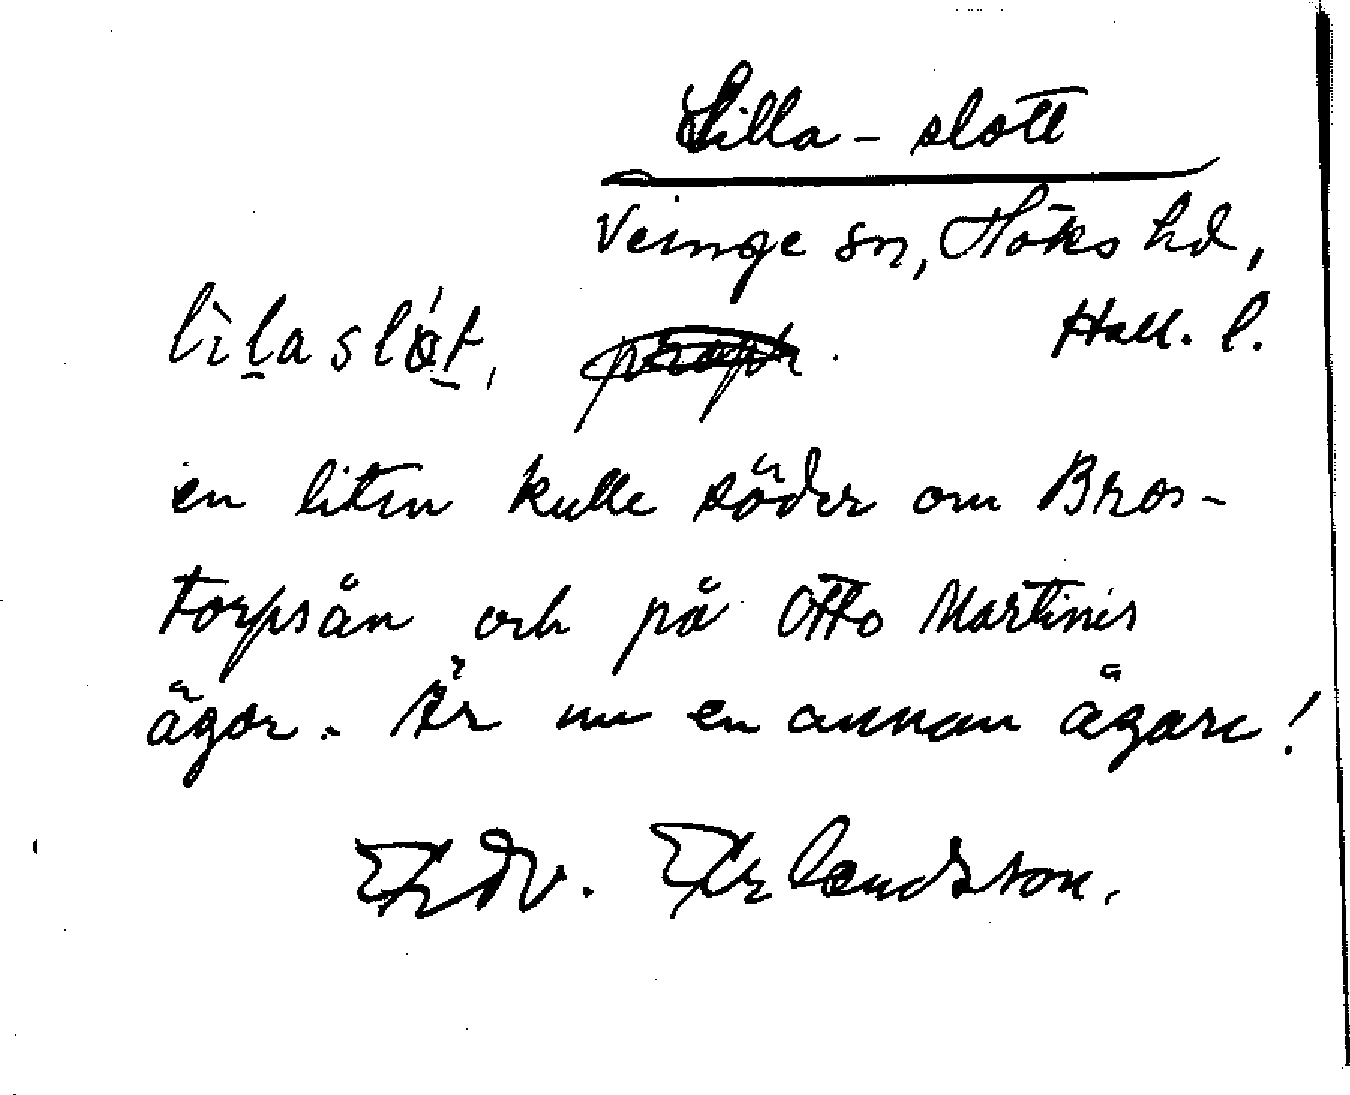 Lilla-slott
Veinge sn, Höks hd,
Hall. l.
lìlaslót,
en liten kulle söder om Bros-
torpsån och på Otto Martinis
ägor. Är nu en annan ägare!
Edv. Erlandsson.